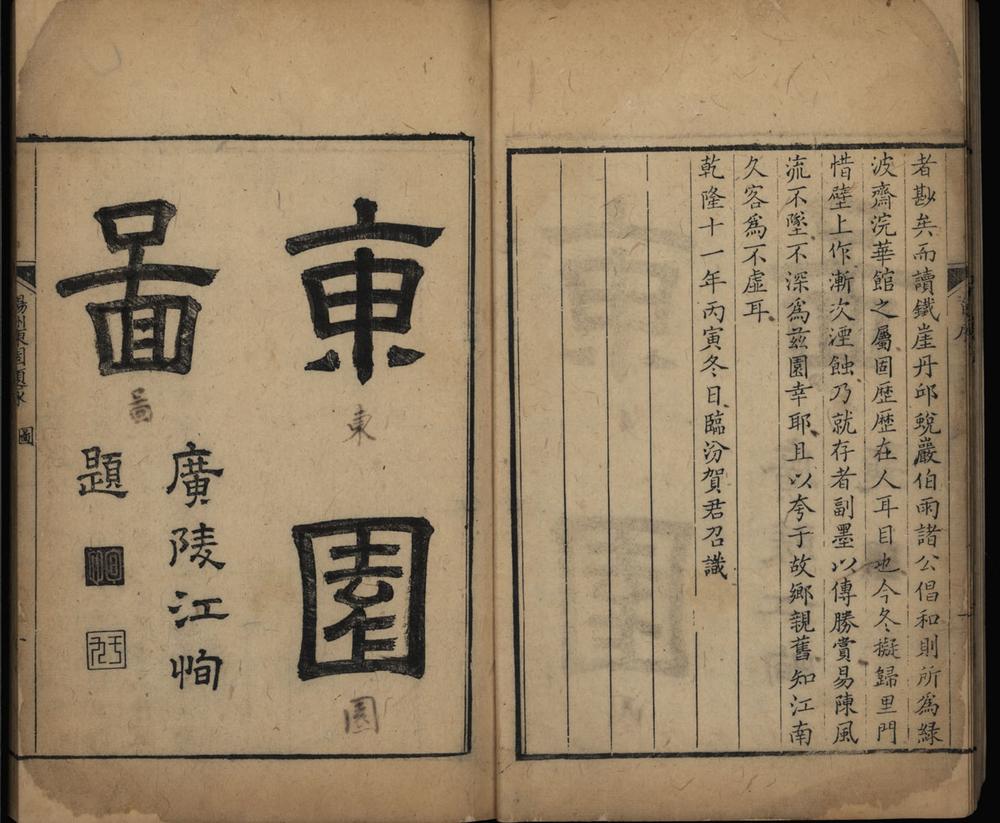 者尠矣而讀鐵崖丹邱蛻巖伯雨諸公倡和則所爲緑
波齋浣華館之屬固歷歷在人耳目也今冬擬歸里門
惜壁上作漸次湮蝕乃就存者副墨以傳勝賞易陳風
流不墜不深爲茲園幸耶且以夸于故鄉親舊知江南
久客爲不虛耳
乾隆十一年丙寅冬日臨汾賀君召識
東園
圖
東
園
啚
廣陵江恂
題
圖